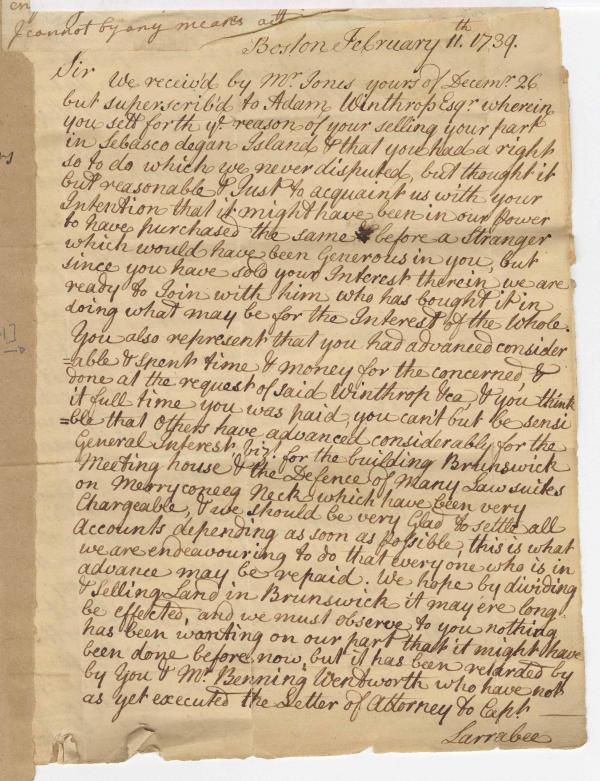 en
I cannot by any means
Boston February 11.th 1739.
Sir
We receiv'd by Mr. Jones yours of Decemr. 26
but superscrib'd to Adam Winthrop Esqr. wherein
you sett forth ye. reason of your selling your part
in Sebasco degan Island & that you had a right
so to do which we never disputed, but thought it
but reasonable & Just to acquaint us with your
Intention that it might have been in our Power
to have purchased the same before a Stranger
which would have been Generous in you, but
since you have sold your Interest therein we are
ready to Join with him who has bought it in
doing what may be for the Interest of the Whole.
You also represent that you had advanced consider
=able & spent time & money for the concerned, &
done at the request of said Winthrop &ca, & you think
it full time you was paid, you can't but be sensi
=ble that Others have advanced considerably for the
General Interest biz. for the building Brunswick
Meeting house & the Defence of Many Law suites
on Merryconeeg Neck which have been very
Chargeable, & we should be very Glad to settle all
Accounts depending as soon as possible, this is what
we are endeavouring to do that every one who is in
advance may be repaid. We hope by dividing
& selling Land in Brunswick it may ere long
be effected, and we must observe to you nothing
has been wanting on our part that it might have
been done before now, but it has been retarded by
by You & Mr. Benning Wentworth who have not
as yet executed the Letter of Attorney to Capt.
Larrabee